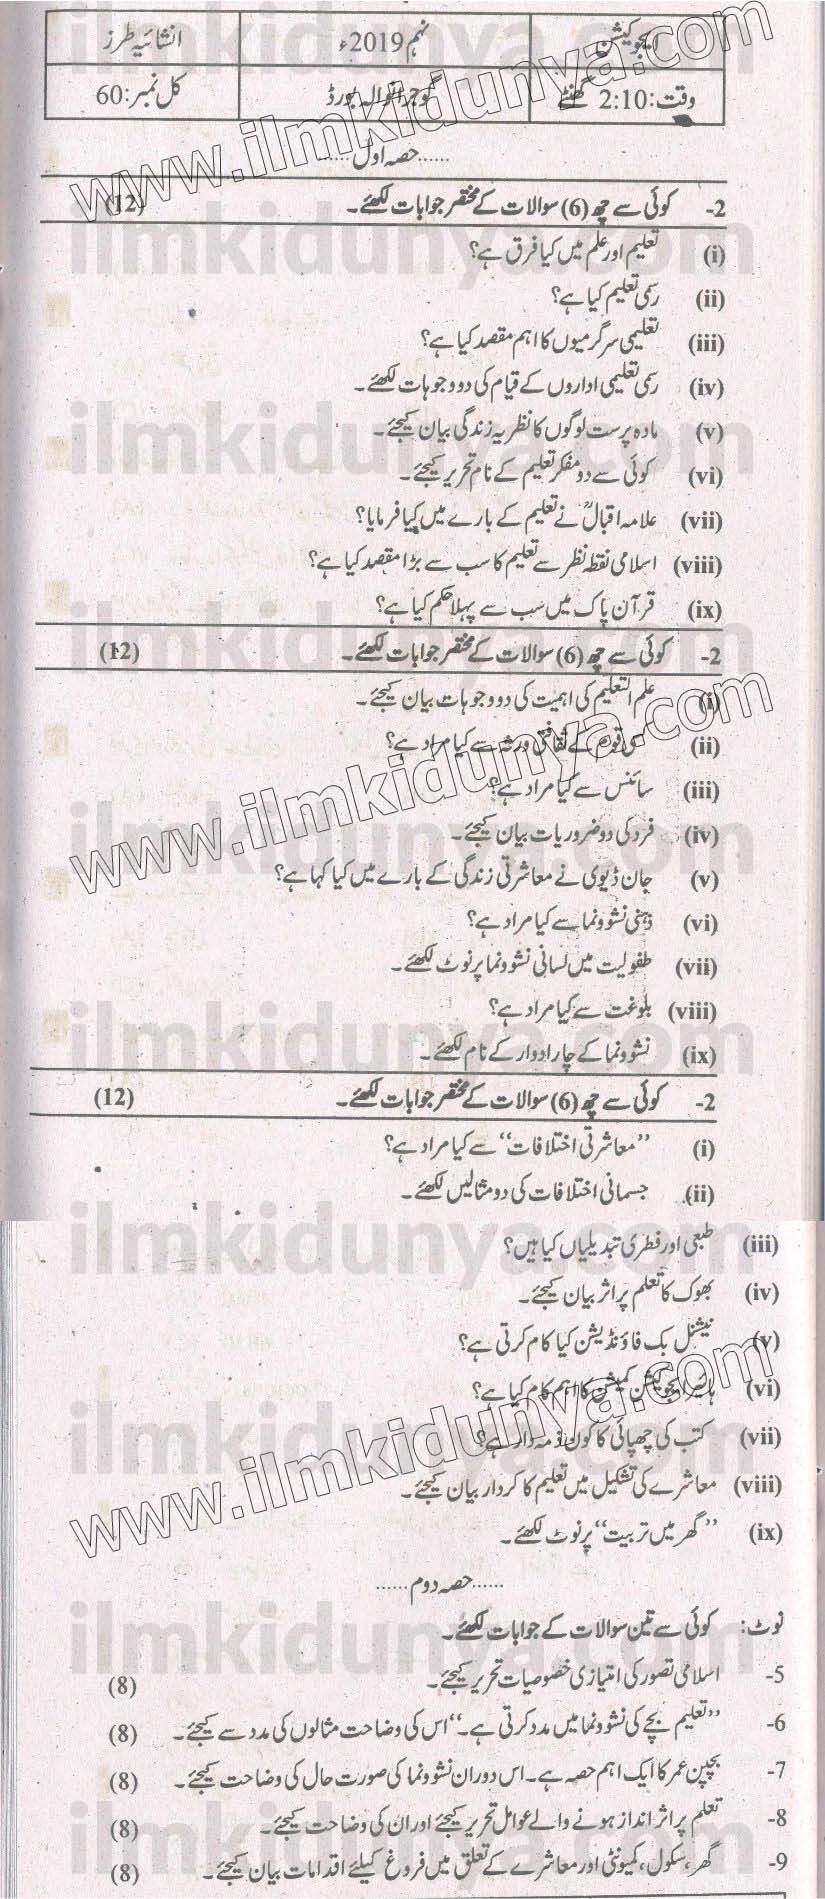 ایجوکیشن نہم 2019ء انشائیہ طرز
وقت: 2:10 گھنٹے گوجرانوالہ بورڈ کل نمبر: 60
......حصہ اول......
2- کوئی سے چھ (6) سوالات کے مختصر جوابات لکھئے۔ (12)
(i) تعلیم اور علم میں کیا فرق ہے؟
(ii) رسمی تعلیم کیا ہے؟
(iii) تعلیمی سرگرمیوں کا اہم مقصد کیا ہے؟
(iv) رسمی تعلیمی اداروں کے قیام کی دو وجوہات لکھئے۔
(v) مادہ پرست لوگوں کا نظریہ زندگی بیان کیجئے۔
(vi) کوئی سے دو مفکر تعلیم کے نام تحریر کیجئے۔
(vii) علامہ اقبالؒ نے تعلیم کے بارے میں کیا فرمایا؟
(viii) اسلامی نقطہ نظر سے تعلیم کا سب سے بڑا مقصد کیا ہے؟
(ix) قرآن پاک میں سب سے پہلا حکم کیا ہے؟
2- کوئی سے چھ (6) سوالات کے مختصر جوابات لکھئے۔ (12)
(i) علم التعلیم کی اہمیت کی دو وجوہات بیان کیجئے۔
(ii) کسی قوم کے ثقافتی ورثہ سے کیا مراد ہے؟
(iii) سائنس سے کیا مراد ہے؟
(iv) فرد کی دو ضروریات بیان کیجئے۔
(v) جان ڈیوی نے معاشرتی زندگی کے بارے میں کیا کہا ہے؟
(vi) ذہنی نشوونما سے کیا مراد ہے؟
(vii) طفولیت میں لسانی نشوونما پر نوٹ لکھئے۔
(viii) بلوغت سے کیا مراد ہے؟
(ix) نشوونما کے چار ادوار کے نام لکھئے۔
2- کوئی سے چھ (6) سوالات کے مختصر جوابات لکھئے۔ (12)
(i) ’’معاشرتی اختلافات‘‘ سے کیا مراد ہے؟
(ii) جسمانی اختلافات کی دو مثالیں لکھئے۔
(iii) طبعی اور فطری تبدیلیاں کیا ہیں؟
(iv) بھوک کا تعلم پر اثر بیان کیجئے۔
(v) نیشنل بک فاؤنڈیشن کیا کام کرتی ہے؟
(vi) ہائر ایجوکیشن کمیشن کا اہم کام کیا ہے؟
(vii) کتب کی چھپائی کا کون ذمہ دار ہے؟
(viii) معاشرے کی تشکیل میں تعلیم کا کردار بیان کیجئے۔
(ix) ’’گھر میں تربیت‘‘ پر نوٹ لکھئے۔
......حصہ دوم......
نوٹ: کوئی سے تین سوالات کے جوابات لکھئے۔
5- اسلامی تصور کی امتیازی خصوصیات تحریر کیجئے۔ (8)
6- ’’تعلیم بچے کی نشوونما میں مدد کرتی ہے۔‘‘ اس کی وضاحت مثالوں کی مدد سے کیجئے۔ (8)
7- بچپن عمر کا ایک اہم حصہ ہے۔ اس دوران نشوونما کی صورت حال کی وضاحت کیجئے۔ (8)
8- تعلم پر اثر انداز ہونے والے عوامل تحریر کیجئے اور ان کی وضاحت کیجئے۔ (8)
9- گھر، سکول، کمیونٹی اور معاشرے کے تعلق میں فروغ کیلئے اقدامات بیان کیجئے۔ (8)
www.ilmkidunya.com
ilmkidunya.com